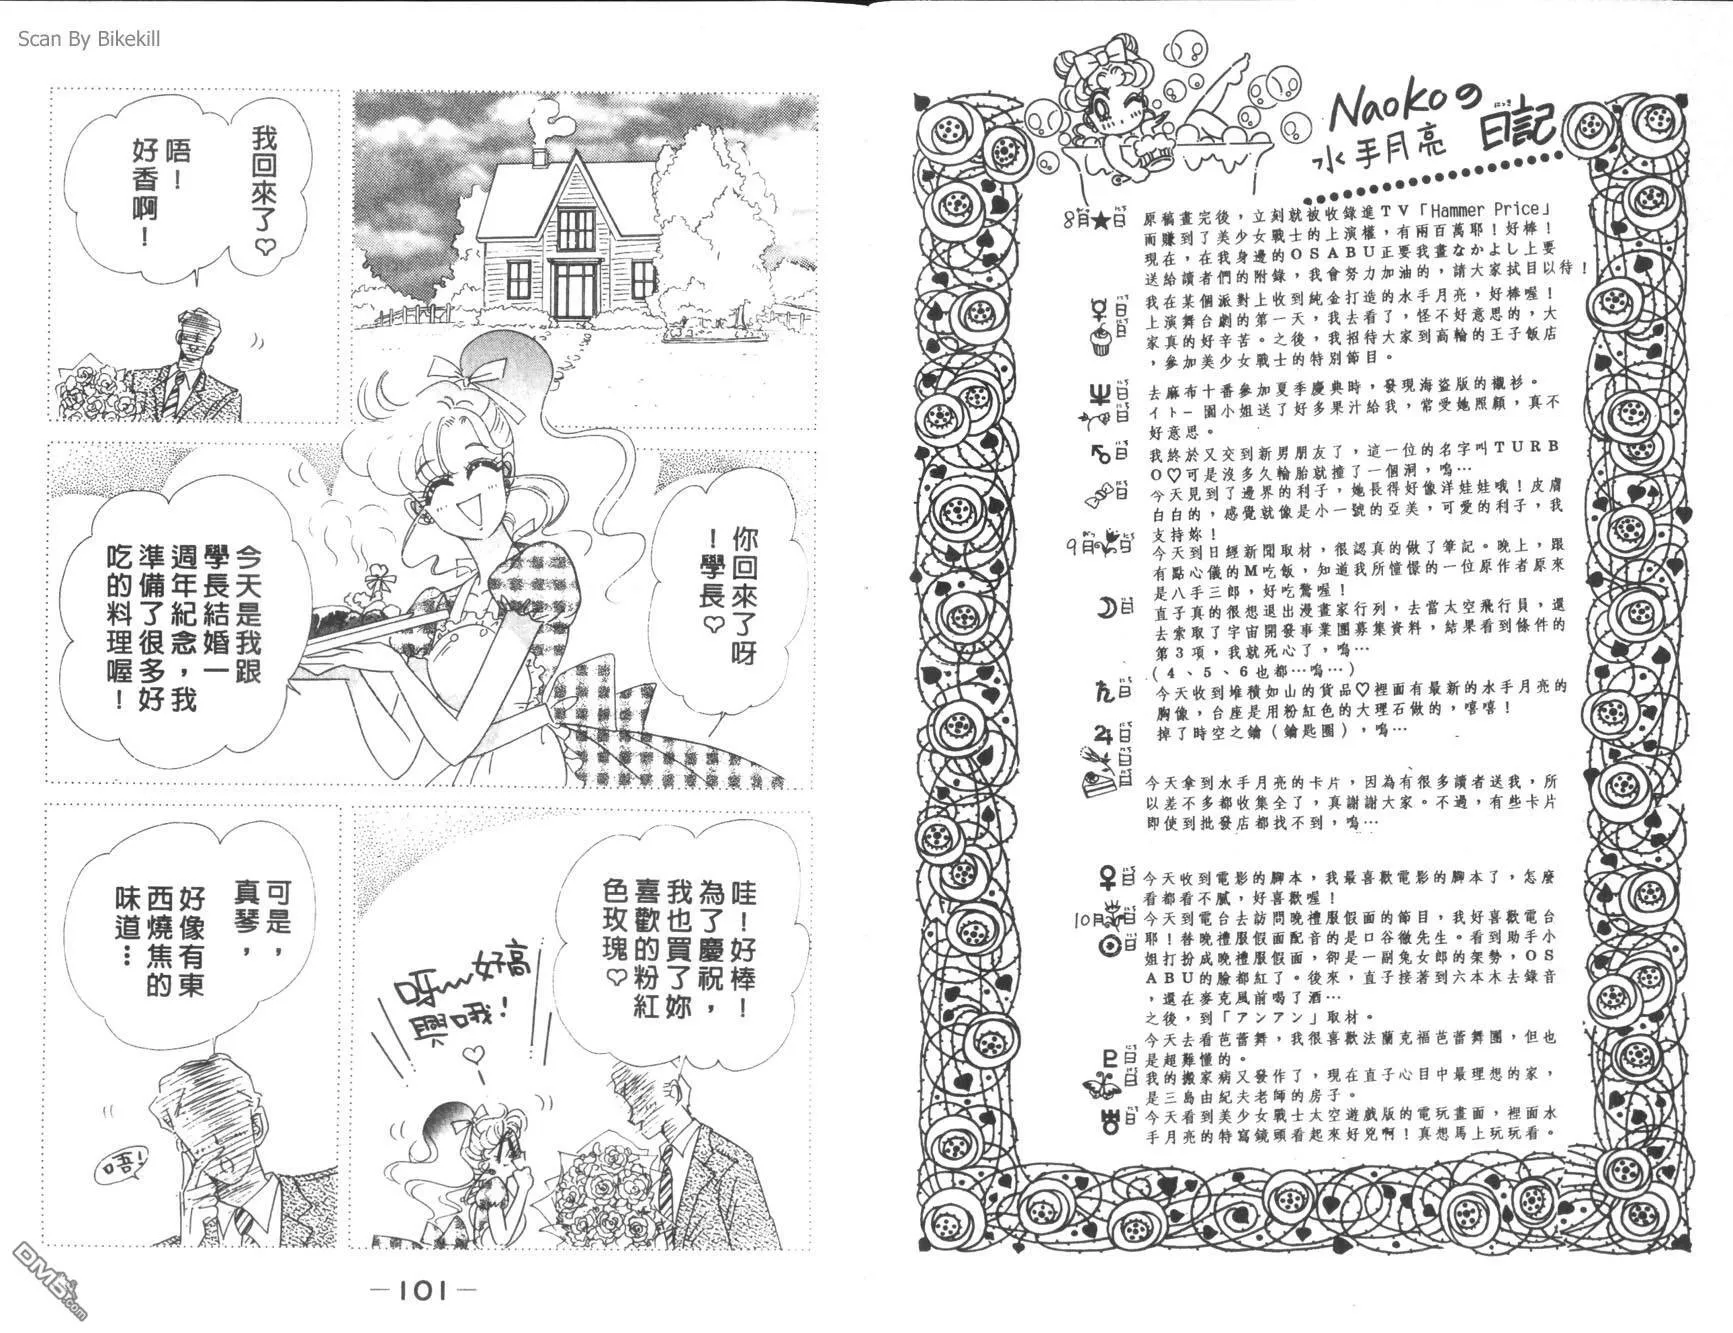 Scan By Bikekill
Naokoの
水手月亮
日記
8月★日
原稿畫完後，立刻就被收錄進TV「Hammer Price」
而賺到了美少女戰士的上演權，有兩百萬耶！好棒！
現在，在我身邊的OSABU正要我畫なかよし上要
送給讀者們的附錄，我會努力加油的，請大家拭目以待！
☿日
日
我在某個派對上收到純金打造的水手月亮，好棒喔！
上演舞台劇的第一天，我去看了，怪不好意思的，大
家真的好辛苦。之後，我招待大家到高輪的王子飯店
，參加美少女戰士的特別節目。
日
日
去麻布十番參加夏季慶典時，發現海盜版的襯衫。
イトー園小姐送了好多果汁給我，常受她照顧，真不
好意思。
♂日
我終於又交到新男朋友了，這一位的名字叫TURB
O♡可是沒多久輪胎就撞了一個洞，嗚…
日
今天見到了邊界的利子，她長得好像洋娃娃哦！皮膚
白白的，感覺就像是小一號的亞美，可愛的利子，我
支持妳！
9月日
今天到日經新聞取材，很認真的做了筆記。晚上，跟
有點心儀的M吃飯，知道我所憧憬的一位原作者原來
是八手三郎，好吃驚喔！
☽日
直子真的很想退出漫畫家行列，去當太空飛行員，還
去索取了宇宙開發事業團募集資料，結果看到條件的
第3項，我就死心了，嗚…
(4、5、6也都…嗚…)
♄日
今天收到堆積如山的貨品♡裡面有最新的水手月亮的
胸像，台座是用粉紅色的大理石做的，嘻嘻！
♃日
掉了時空之鑰（鑰匙圈），嗚…
日
日
今天拿到水手月亮的卡片，因為有很多讀者送我，所
以差不多都收集全了，真謝謝大家。不過，有些卡片
即使到批發店都找不到，嗚…
♀日
今天收到電影的腳本，我最喜歡電影的腳本了，怎麼
看都看不膩，好喜歡喔！
10月日
今天到電台去訪問晚禮服假面的節目，我好喜歡電台
☉日
耶！替晚禮服假面配音的是口谷徹先生。看到助手小
姐打扮成晚禮服假面，卻是一副兔女郎的架勢，OS
ABU的臉都紅了。後來，直子接著到六本木去錄音
，還在麥克風前喝了酒…
之後，到「アンアン」取材。
今天去看芭蕾舞，我很喜歡法蘭克福芭蕾舞團，但也
是超難懂的。
日
日
我的搬家病又發作了，現在直子心目中最理想的家，
是三島由紀夫老師的房子。
日
今天看到美少女戰士太空遊戲版的電玩畫面，裡面水
手月亮的特寫鏡頭看起來好兇啊！真想馬上玩玩看。
我回來了♡
唔！
好香啊！
你回來了呀
！學長♡
今天是我跟
學長結婚一
週年紀念，我
準備了很多好
吃的料理喔！
哇！好棒！
為了慶祝，
我也買了妳
喜歡的粉紅
色玫瑰♡
呀~~好高
興哦！
♡
可是，
真琴，
好像有東
西燒焦的
味道…
唔！
—101—
DM5.com